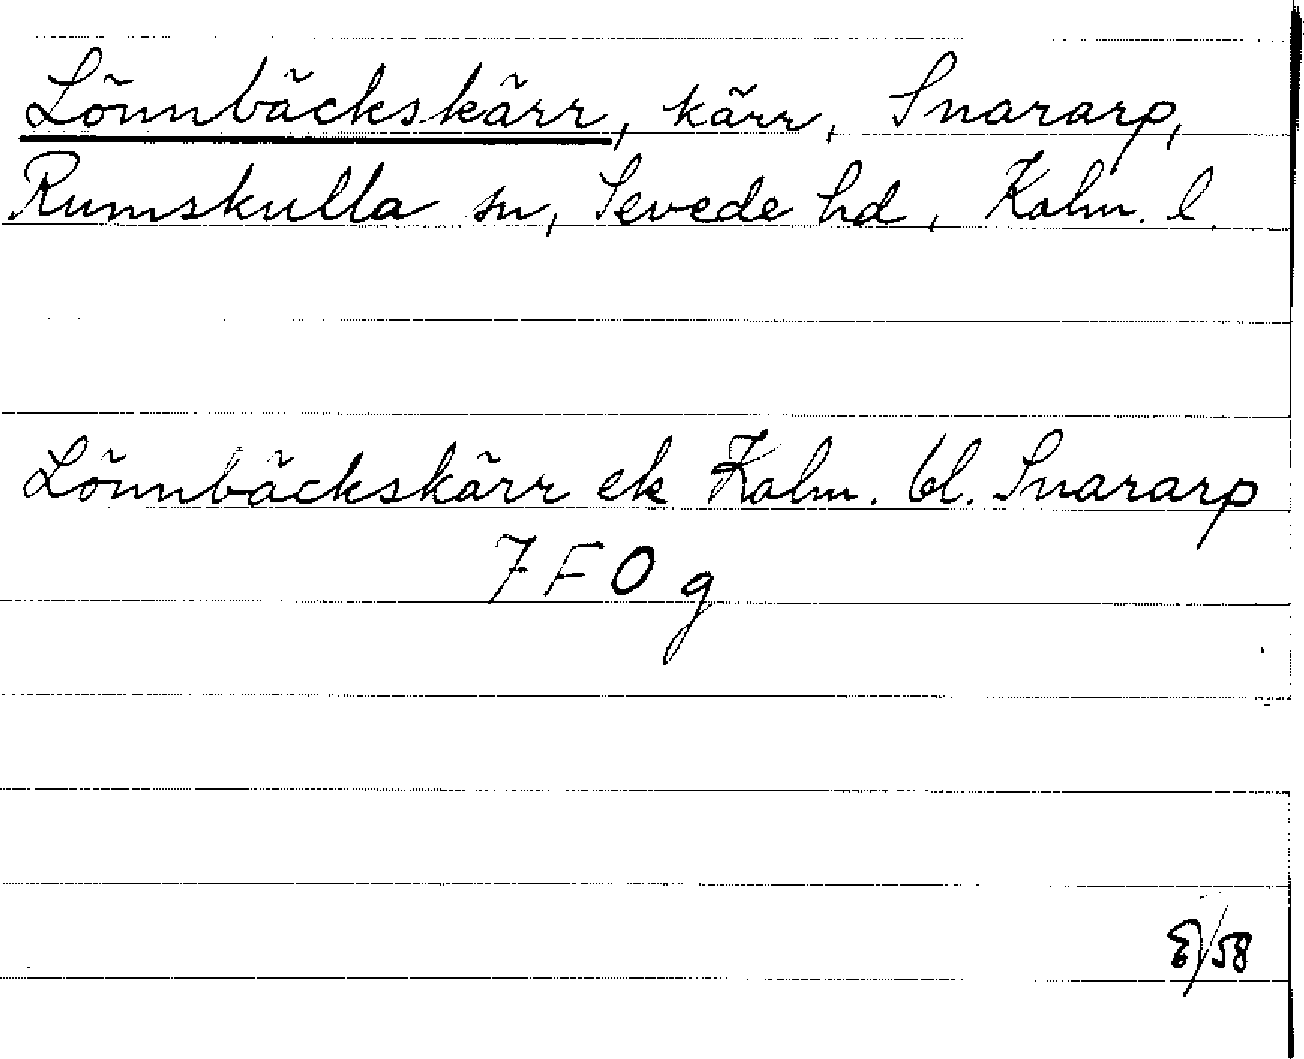 Lönnbäckskärr, kärr, Snararp,
Rumskulla sn, Sevede hd, Kalm. l.
Lönnbäckskärr ek Kalm. bl. Snararp
7 F 0 g
E/58